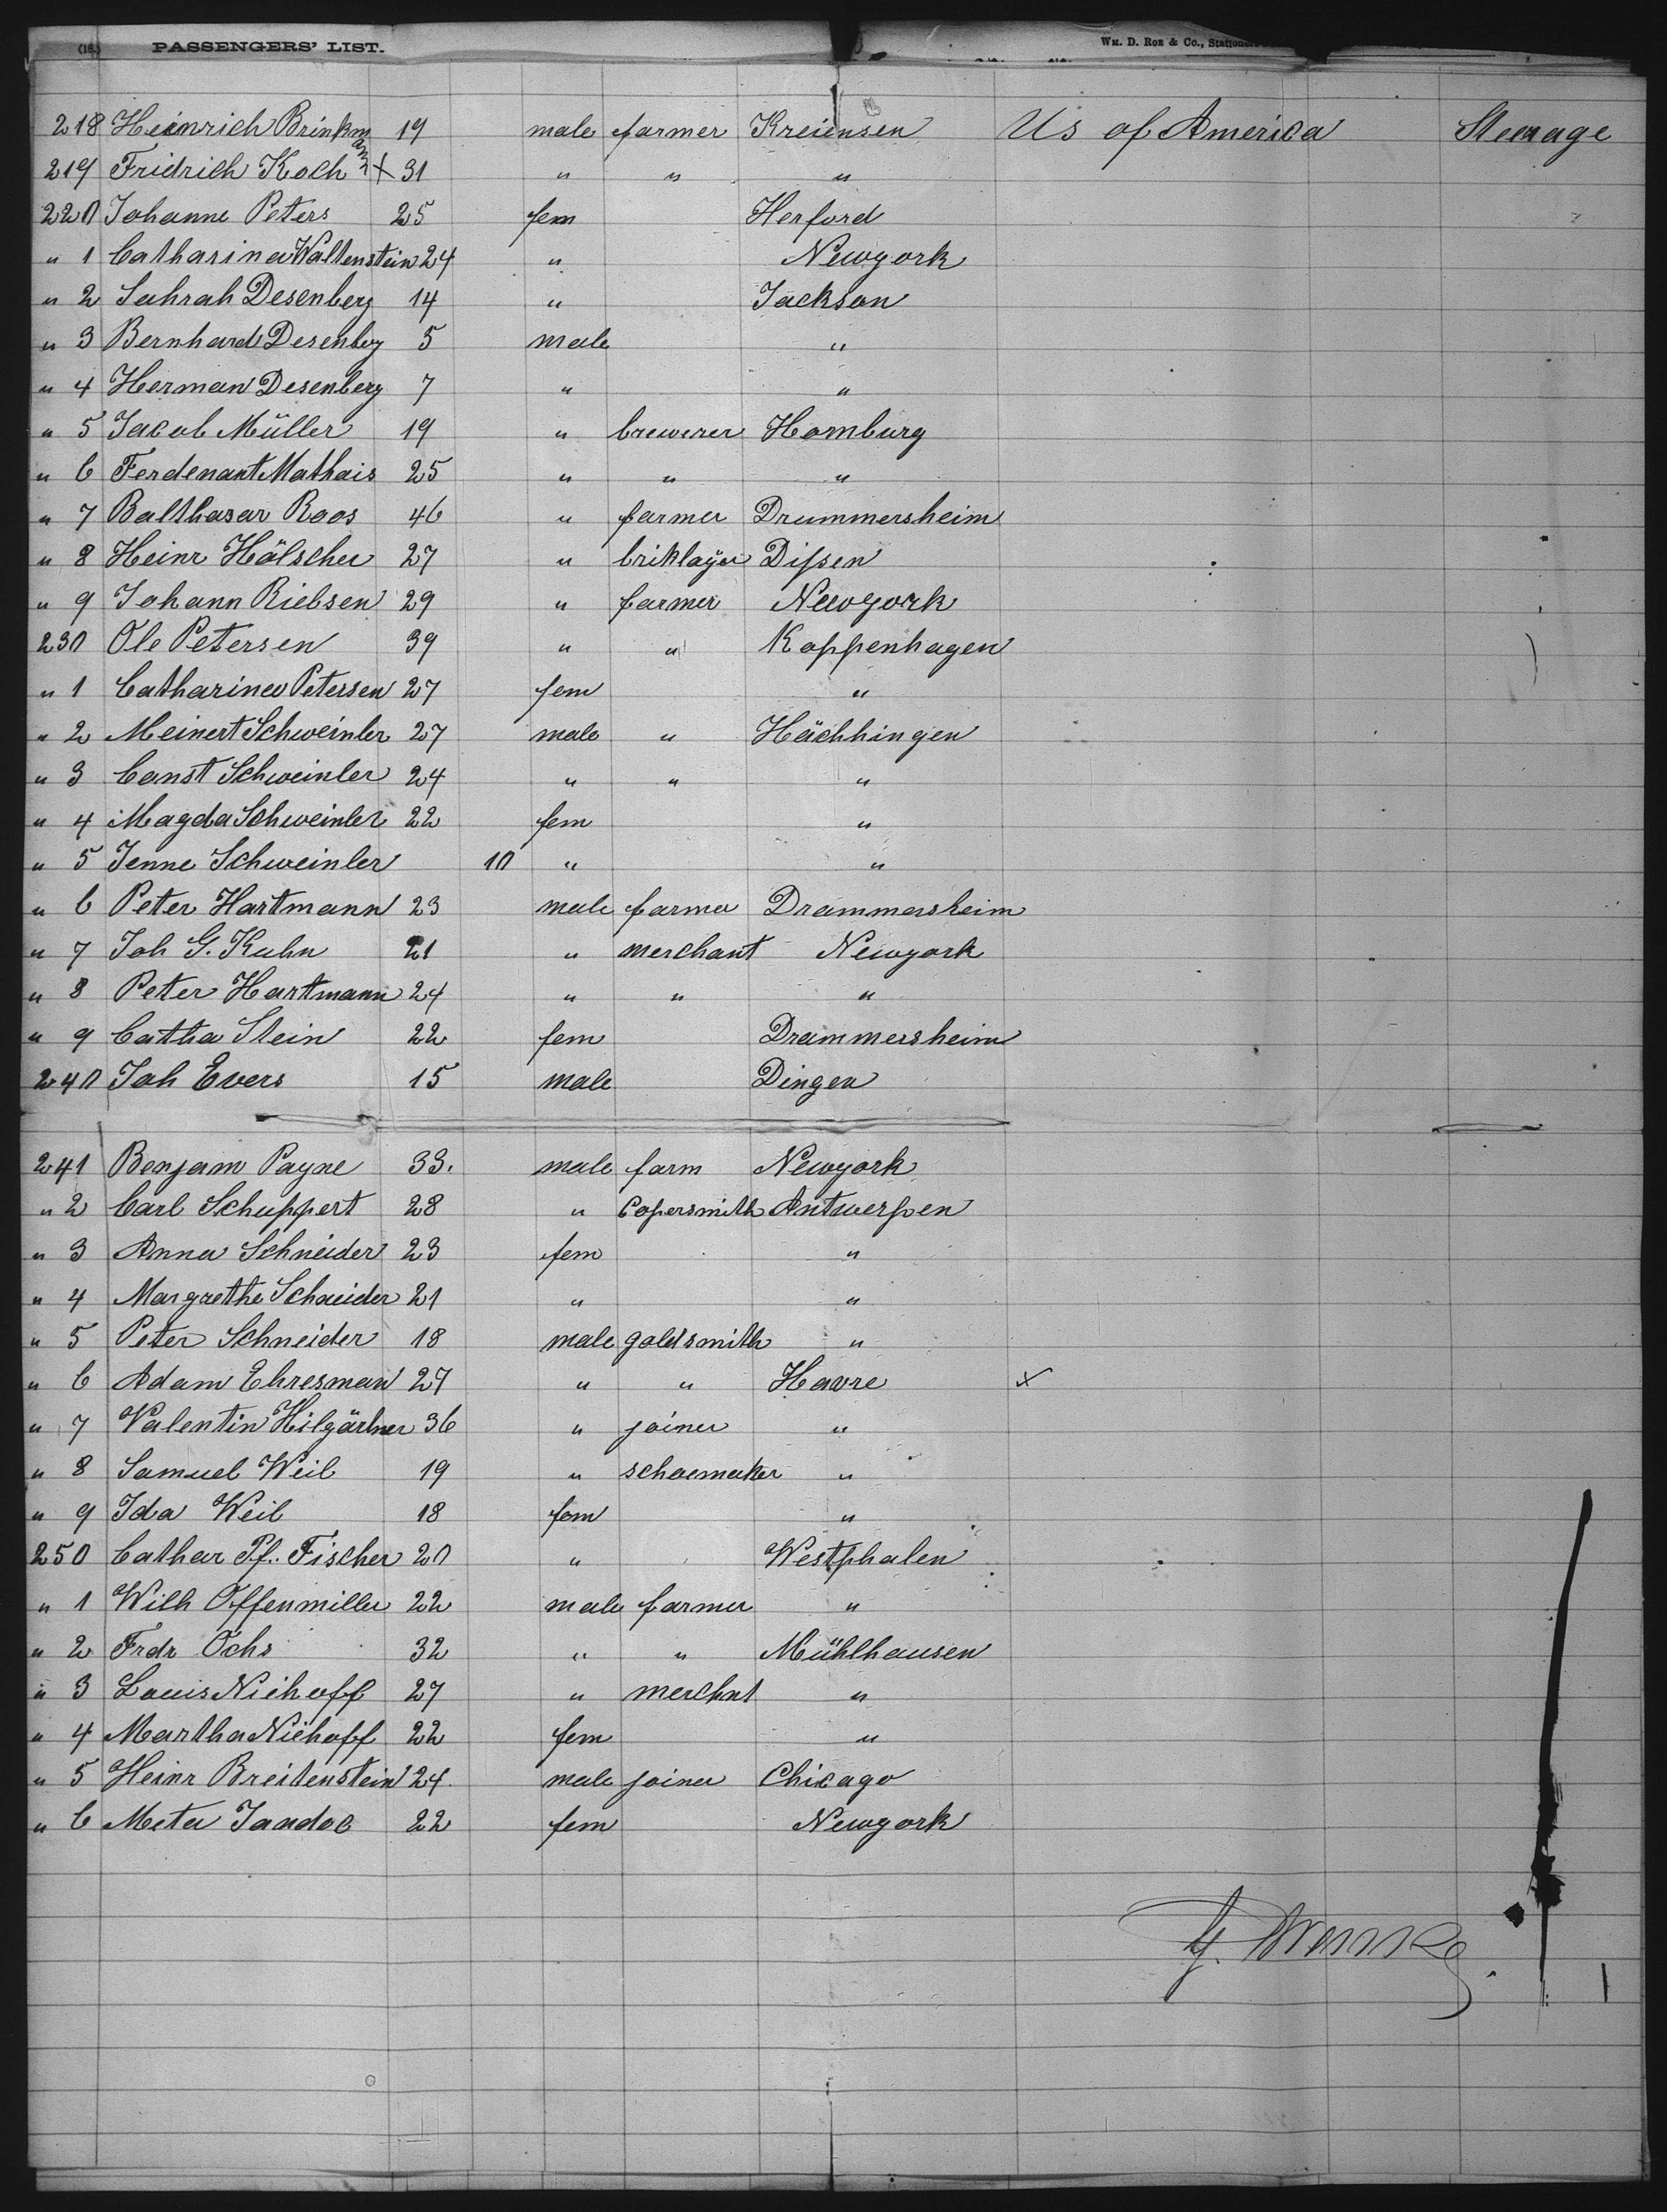 (16.) PASSENGERS' LIST. Wm. D. Roe & Co., Stationers
218 Heinrich Brinkmann 19 male farmer Kreiensen Us of America Steerage
219 Fridrich Koch + 31 " " "
220 Johanne Peters 25 fem Herford
" 1 Catharina Waltenstein 24 " Newyork
" 2 Sahrah Desenberg 14 " Jackson
" 3 Bernhard Desenberg 5 male "
" 4 Herman Desenberg 7 " "
" 5 Jacob Müller 19 " brewerer Homburg
" 6 Ferdenant Mathais 25 " " "
" 7 Balthasar Roos 46 " farmer Drummersheim
" 8 Heinr Hölscher 27 " briklayer Dissen
" 9 Johann Rielsen 29 " farmer Newyork
230 Ole Petersen 39 " " Koppenhagen
" 1 Catharine Petersen 27 fem "
" 2 Meinert Schweinler 27 male " Hächhingen
" 3 Const Schweinler 24 " " "
" 4 Magda Schweinler 22 fem "
" 5 Jenne Schweinler 10 " "
" 6 Peter Hartmann 23 male farmer Drammersheim
" 7 Joh G. Kuhn 21 " merchant Newyork
" 8 Peter Hartmann 24 " " "
" 9 Catha Stein 22 fem Drammersheim
240 Joh Evers 15 male Dingen
241 Benjam Payne 33. male farm Newyork
" 2 Carl Schuppert 28 " Copersmith Antwerpen
" 3 Anna Schneider 23 fem "
" 4 Margrethe Schneider 21 " "
" 5 Peter Schneider 18 male goldsmith "
" 6 Adam Ehresman 27 " " Havre x
" 7 Valentin Hilgärtner 36 " joiner "
" 8 Samuel Weil 19 " schoemaker "
" 9 Ida Weil 18 fem "
250 Cathar Pf. Fischer 20 " Westphalen
" 1 Wilh Offenmiller 22 male farmer "
" 2 Frdr Ochs 32 " " Mühlhausen
" 3 Louis Niehoff 27 " merchnt "
" 4 Martha Niehoff 22 fem "
" 5 Heinr Breitenstein 24. male joiner Chicago
" 6 Meta Jandoc 22 fem Newyork